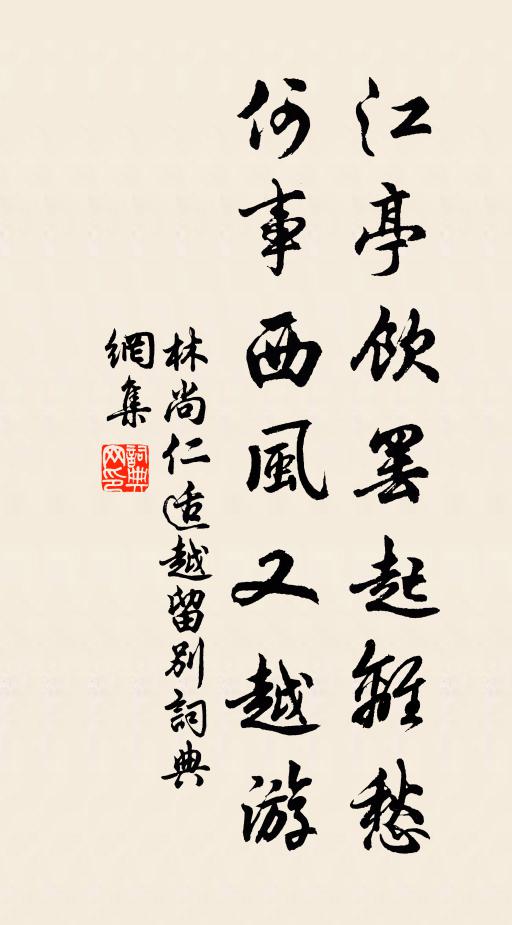 江亭飲罷起離愁
何事西風又越游
林尚仁适越留別詞典
網集
詞典
网印